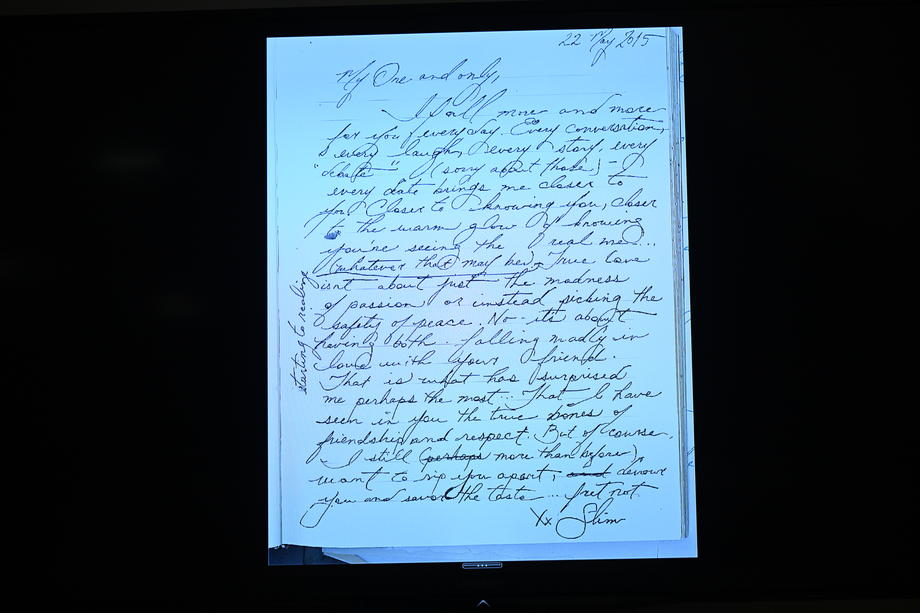 22 May 2015
My One and only,
I fall more and more
for you everyday. Every conversation,
every laugh, every story, every
"debate" (sorry about those) -
every date brings me closer to
you. Closer to knowing you, closer
to the warm glow of knowing
you're seeing the real me...
(whatever that may be). True love
isnt about just the madness
of passion or instead picking the
safety of peace. No - its about
having both. falling madly in
love with your friend.
That is what has surprised
me perhaps the most... That I have
seen in you the true bones of
friendship and respect. But of course,
I still (perhaps more than before)
want to rip you apart, and devour
you and savor the taste... fret not.
Xx Slim
starting to realize